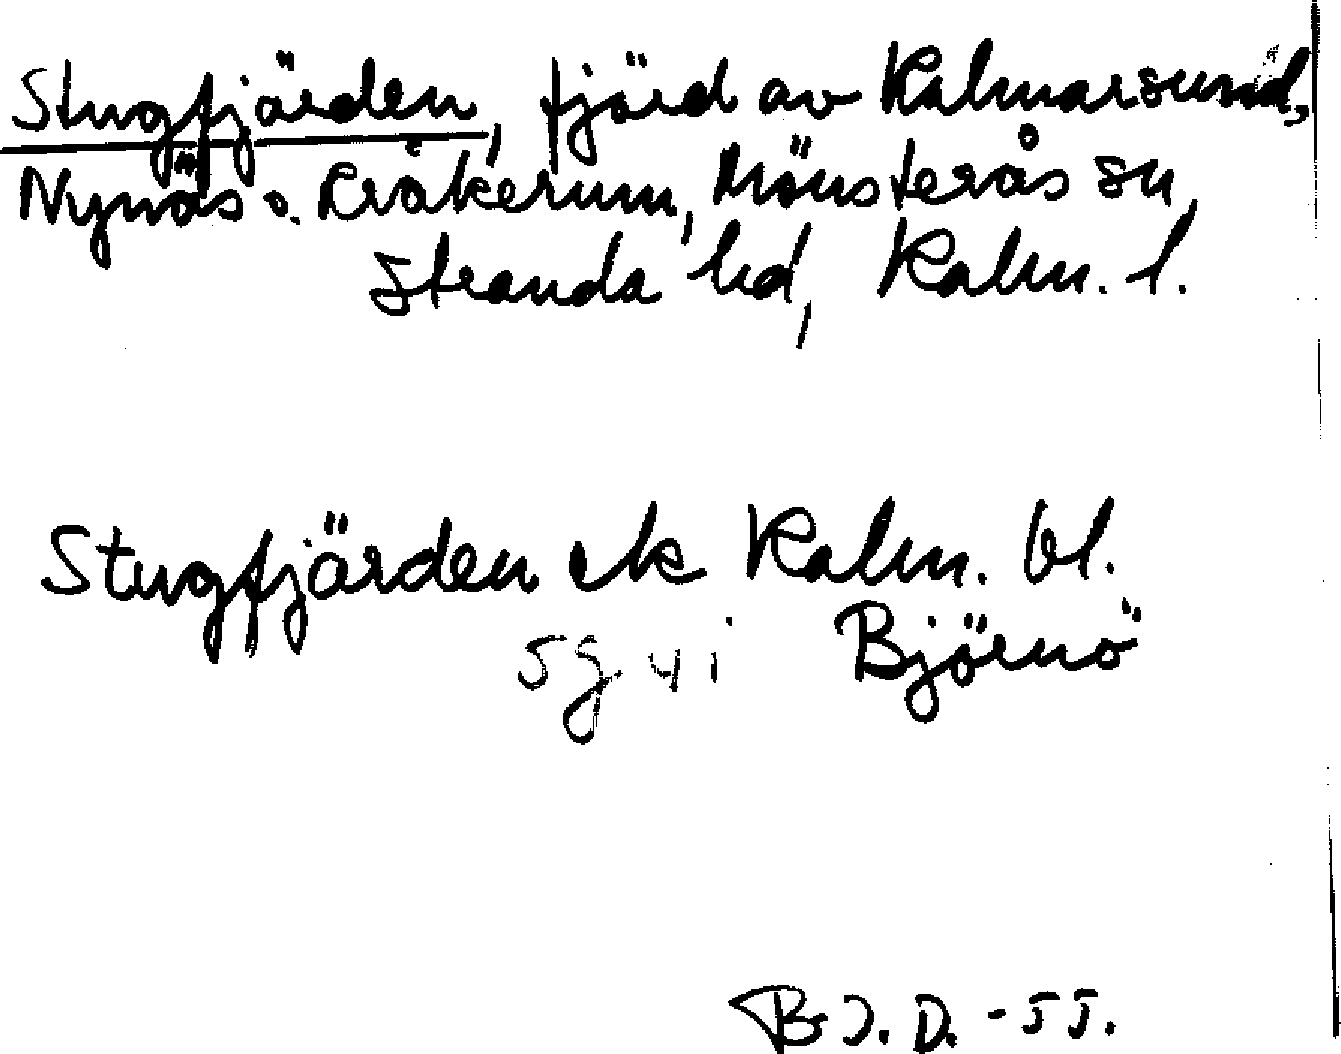 Stugfjärden, fjärd av Kalmarsund,
Nynäs o. Kråkerum, Mönsterås sn,
Stranda hd, Kalm. l.
Stugfjärden ek Kalm. bl.
5g 4i Björnö
B J. D. - 55.